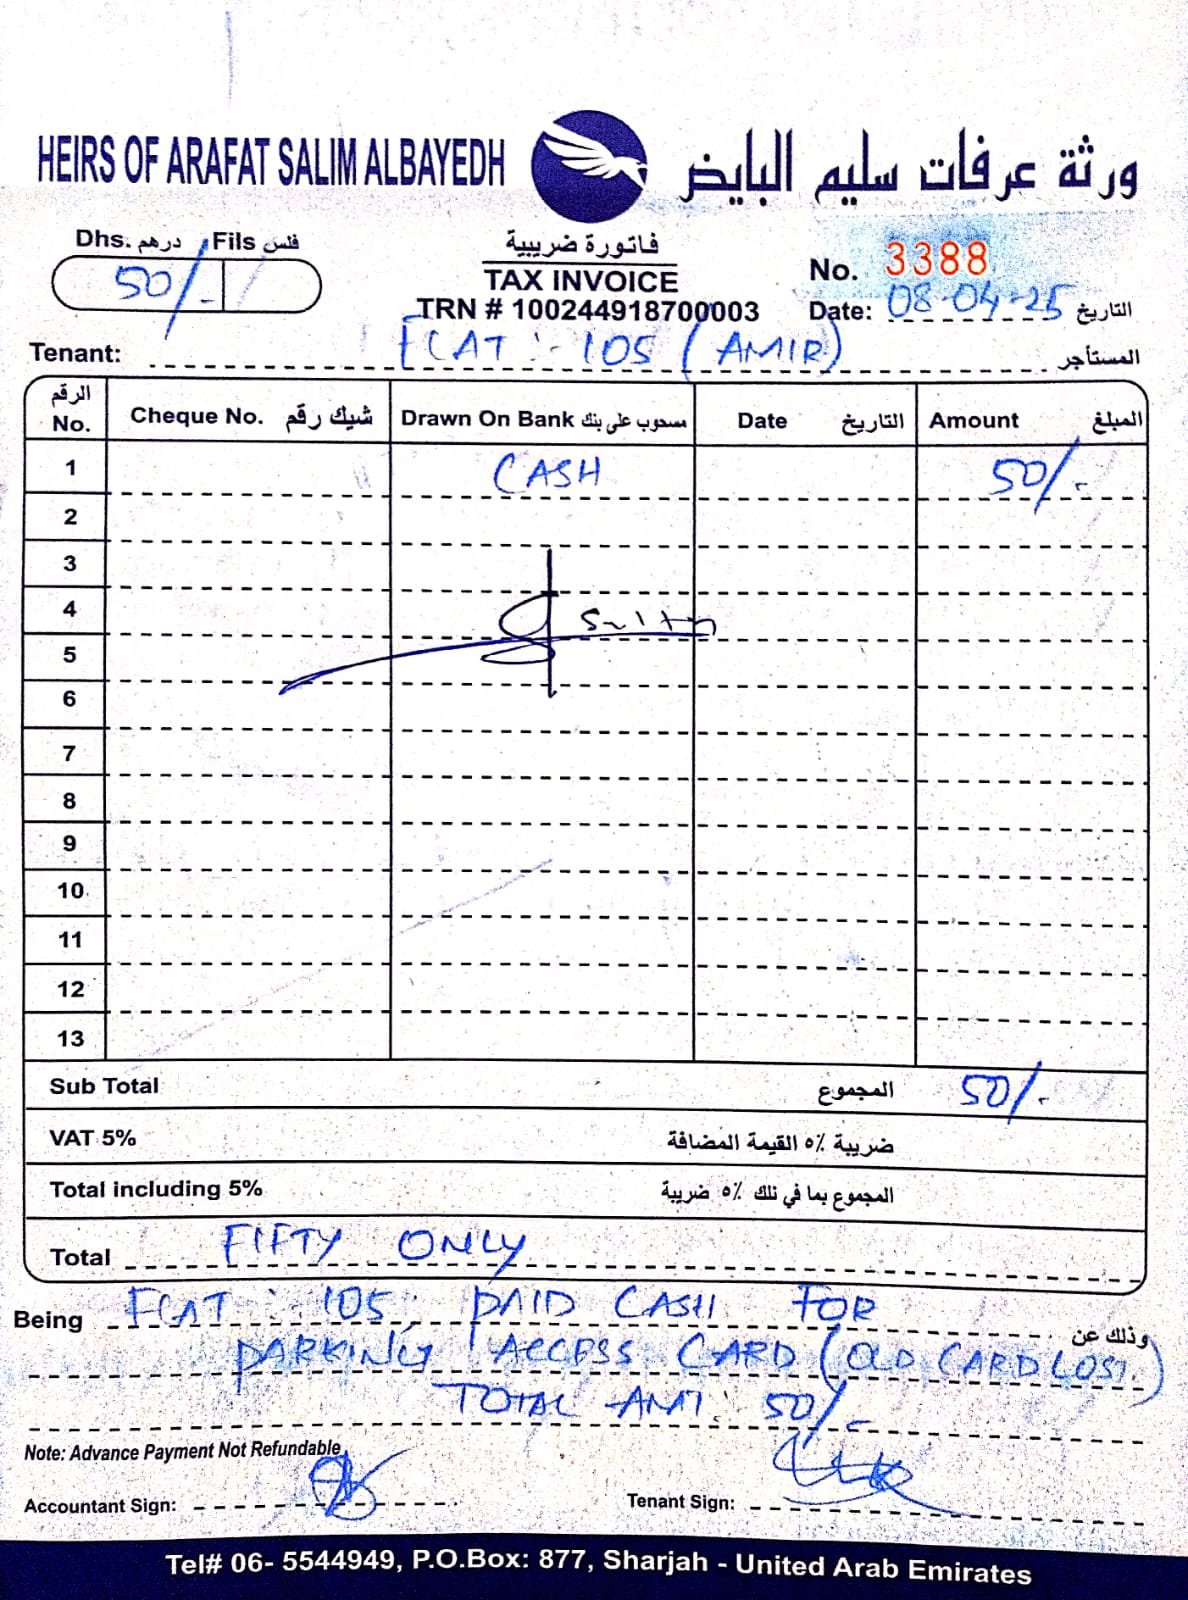 HEIRS OF ARAFAT SALIM ALBAYEDH ورثة عرفات سليم البايض
Dhs. درهم Fils فلس
50/-
فاتورة ضريبية
TAX INVOICE
TRN # 100244918700003
No. 3388
Date: 08-04-25 التاريخ
Tenant: FLAT :- 105 (AMIR) المستأجر
الرقم No. Cheque No. شيك رقم Drawn On Bank مسحوب على بنك Date التاريخ Amount المبلغ
1 CASH 50/-
2
3
4
5
6
7
8
9
10
11
12
13
Sub Total المجموع 50/-
VAT 5% ضريبة ٥٪ القيمة المضافة
Total including 5% المجموع بما في ذلك ٥٪ ضريبة
Total FIFTY ONLY
Being FLAT :- 105, PAID CASH FOR وذلك عن
PARKING ACCESS CARD (OLD CARD LOST.)
TOTAL AMT: 50/-
Note: Advance Payment Not Refundable
Accountant Sign: Tenant Sign:
Tel# 06- 5544949, P.O.Box: 877, Sharjah - United Arab Emirates